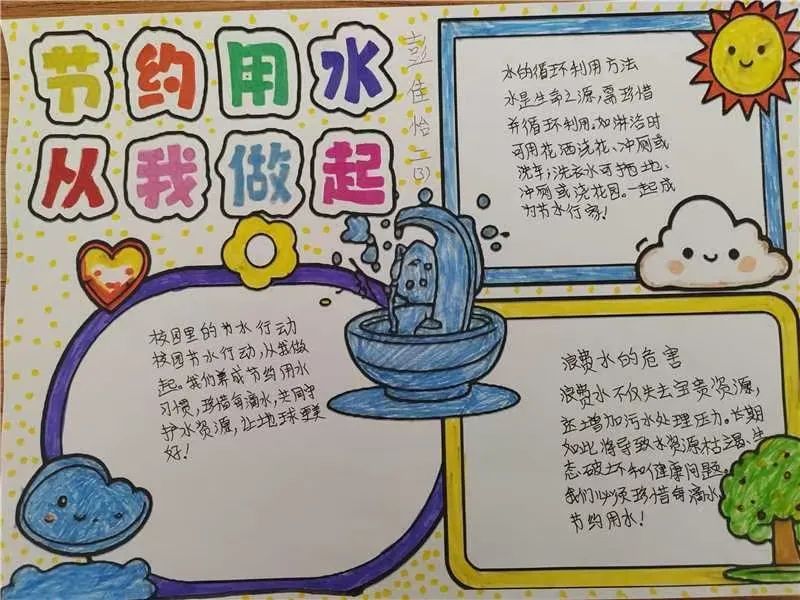 节约用水
从我做起
彭佳怡二(3)
水的循环利用方法
水是生命之源,需珍惜
并循环利用.如淋浴时
可用花洒浇花、冲厕或
洗车;洗衣水可拖地、
冲厕或浇花园。一起成
为节水行家!
校园里的节水行动
校园节水行动,从我做
起。我们养成节约用水
习惯,珍惜每滴水,共同守
护水资源,让地球更美
好!
浪费水的危害
浪费水不仅失去宝贵资源,
还增加污水处理压力。长期
如此将导致水资源枯竭、生
态破坏和健康问题。
我们必须珍惜每滴水,
节约用水!